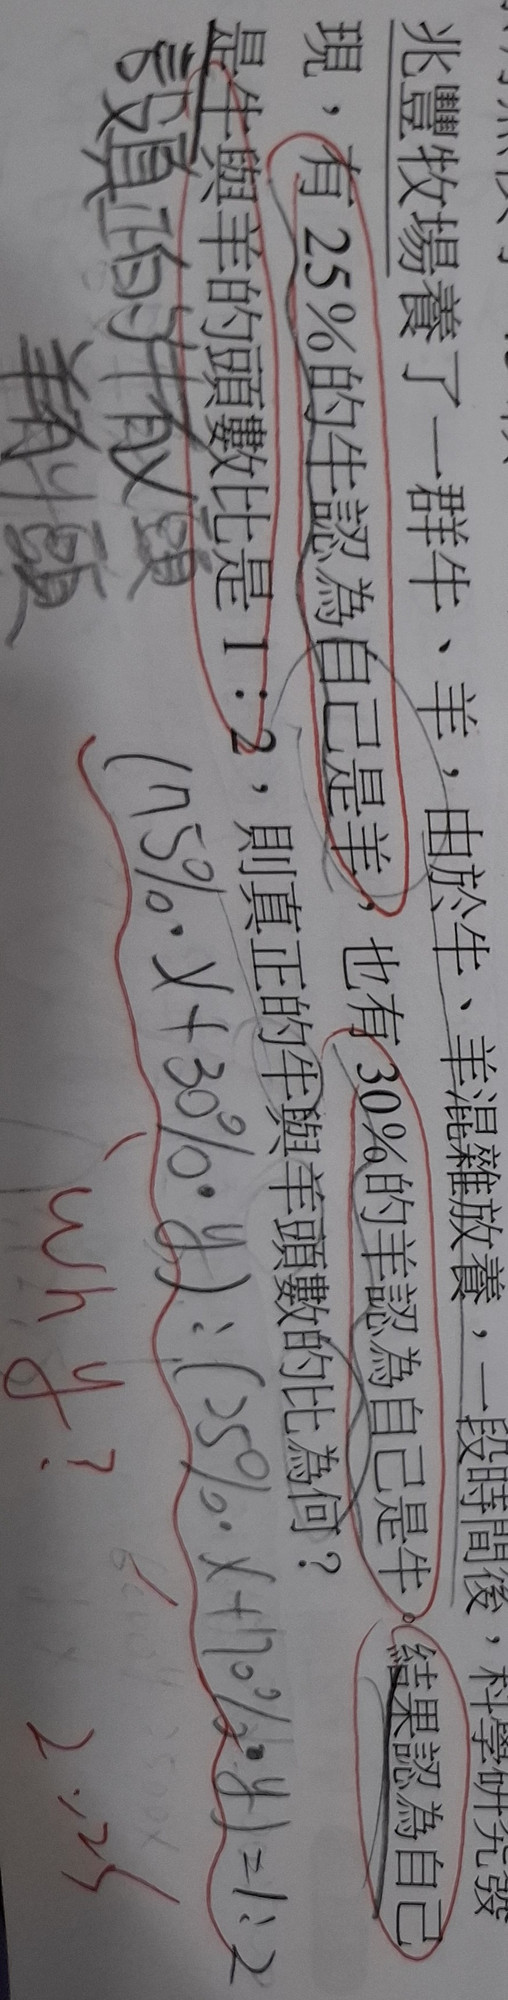 兆豐牧場養了一群牛、羊，由於牛、羊混雜放養，一段時間後，科學研究發
現，有25%的牛認為自己是羊，也有30%的羊認為自己是牛。結果認為自己
是牛與羊的頭數比是1：2，則真正的牛與羊頭數的比為何？
設真的牛有x頭
羊有y頭
(75%·x+30%·y):(25%·x+70%·y)=1:2
why?